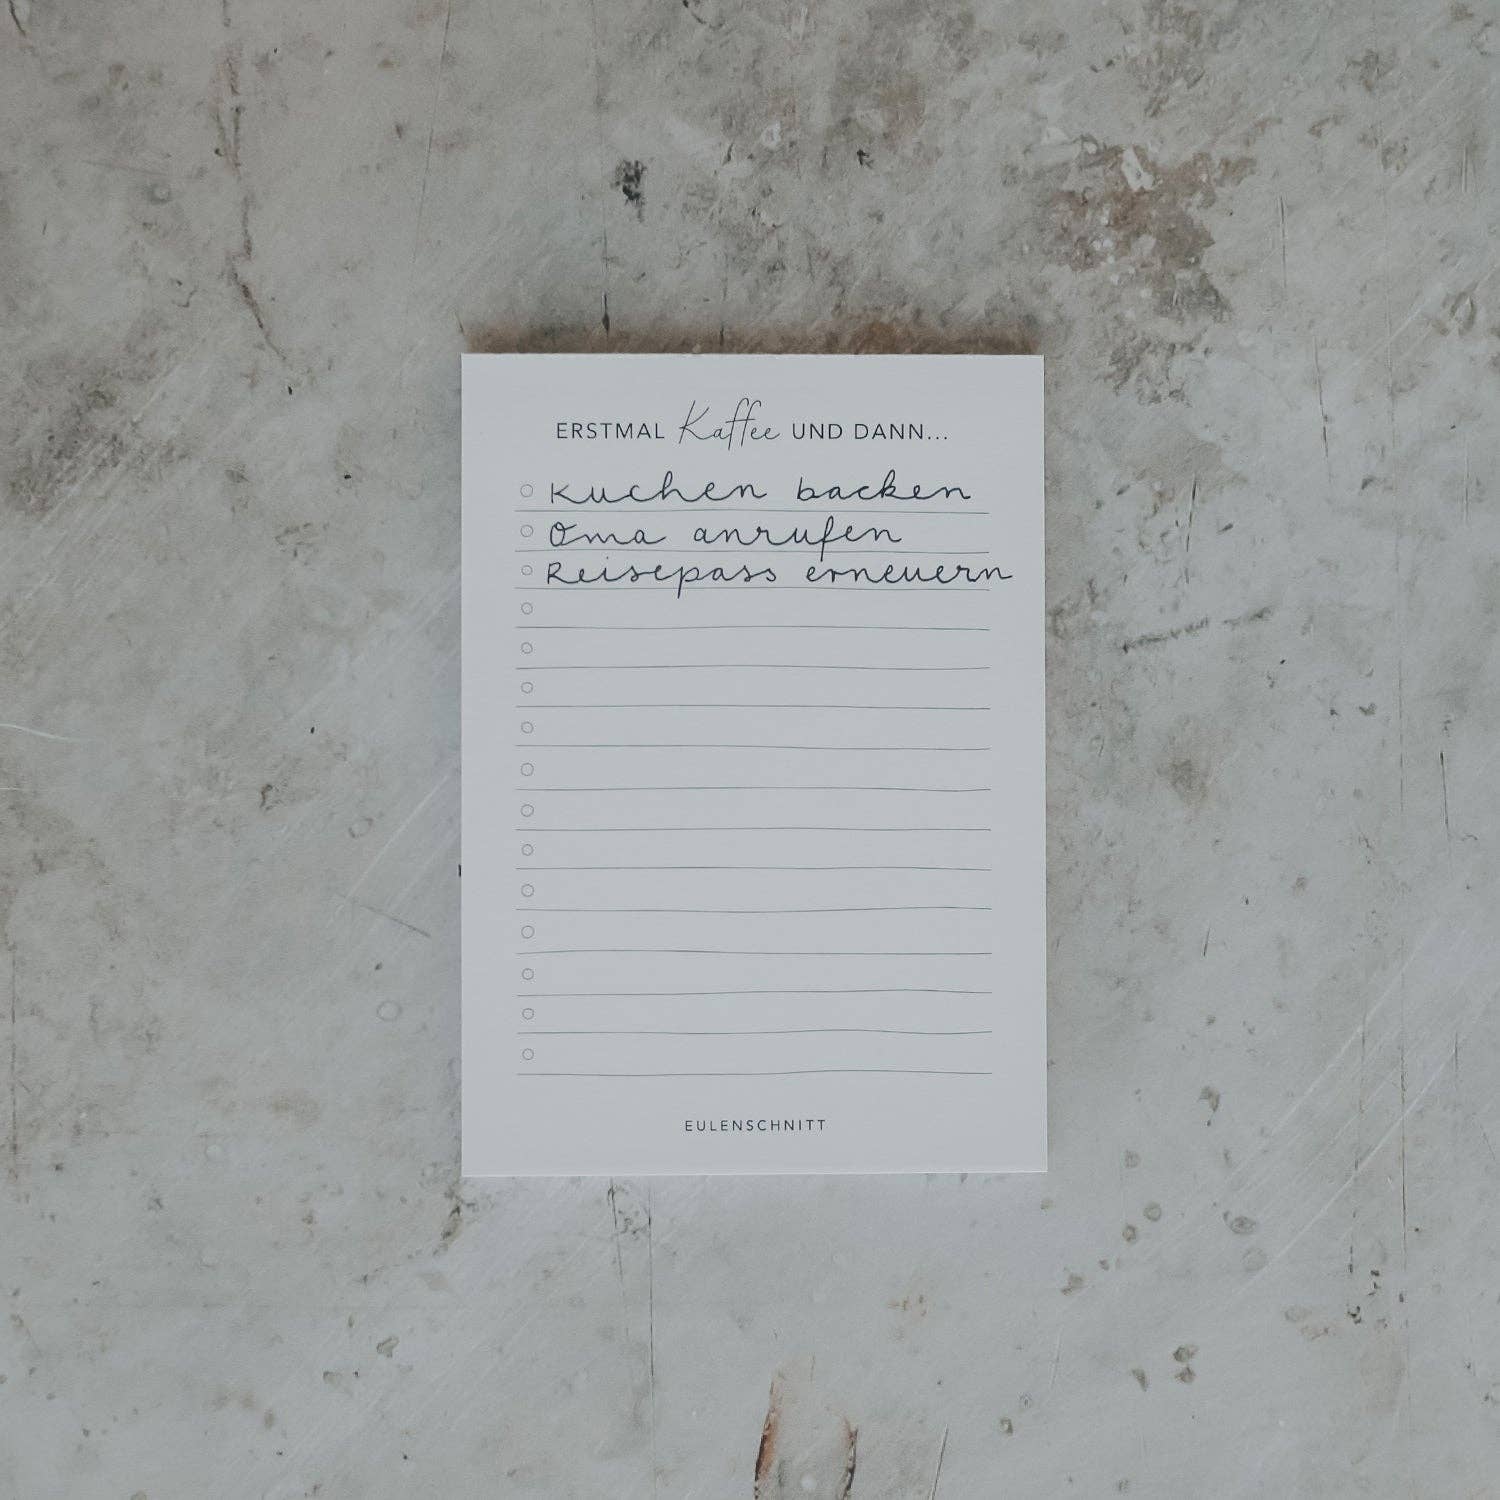 ERSTMAL Kaffee UND DANN...
Kuchen backen
Oma anrufen
Reisepass erneuern
EULENSCHNITT